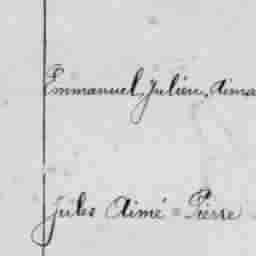 Emmanuel, Julien, Aima
Jules Aimé = Pierre